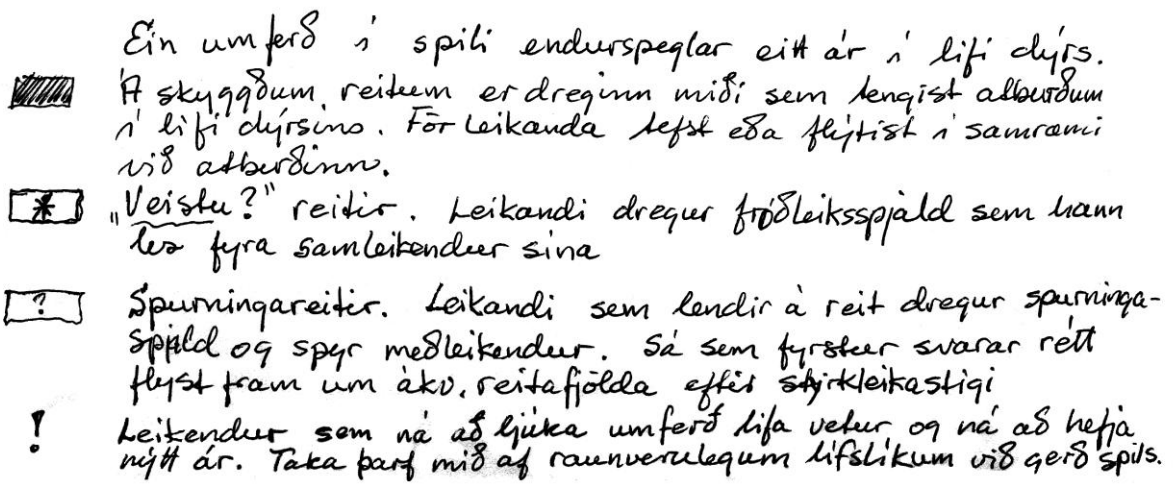 Ein umferð í spili endurspeglar eitt ár í lífi dýrs.
Á skyggðum reitum er dreginn miði sem tengist atburðum
í lífi dýrsins. För leikanda tefst eða flýtist í samræmi
við atburðinn.
* "Veistu?" reitir. Leikandi dregur fróðleiksspjald sem hann
les fyra samleikendur sína
? Spurningareitir. Leikandi sem lendir á reit dregur spurninga-
spjald og spyr meðleikendur. Sá sem fyrstur svarar rétt
flyst fram um ákv. reitafjölda eftir styrkleikastigi
! Leikendur sem ná að ljúka umferð lifa vetur og ná að hefja
nýtt ár. Taka þarf mið af raunverulegum lífslíkum við gerð spils.